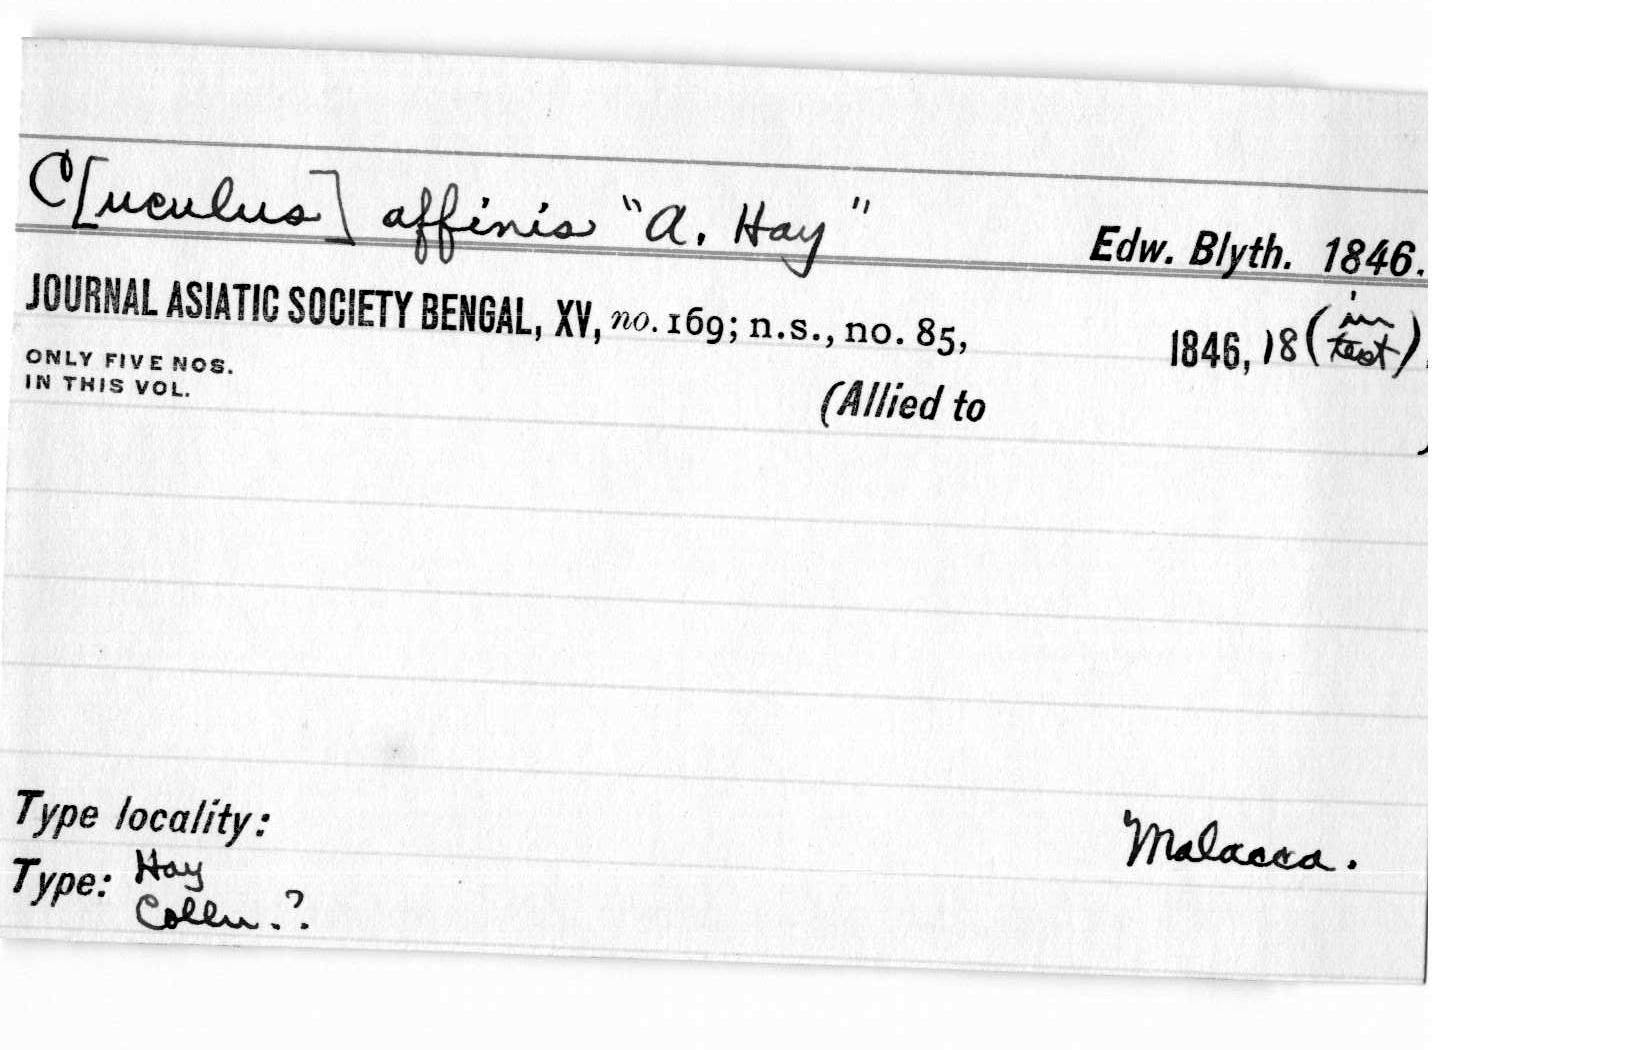 C[uculus] affinis "A. Hay" Edw. Blyth. 1846.
JOURNAL ASIATIC SOCIETY BENGAL, XV, no. 169; n.s., no. 85, 1846, 18 (in text).
ONLY FIVE NOS.
IN THIS VOL.
(Allied to )
Type locality: Malacca.
Type: Hay
Colln.?